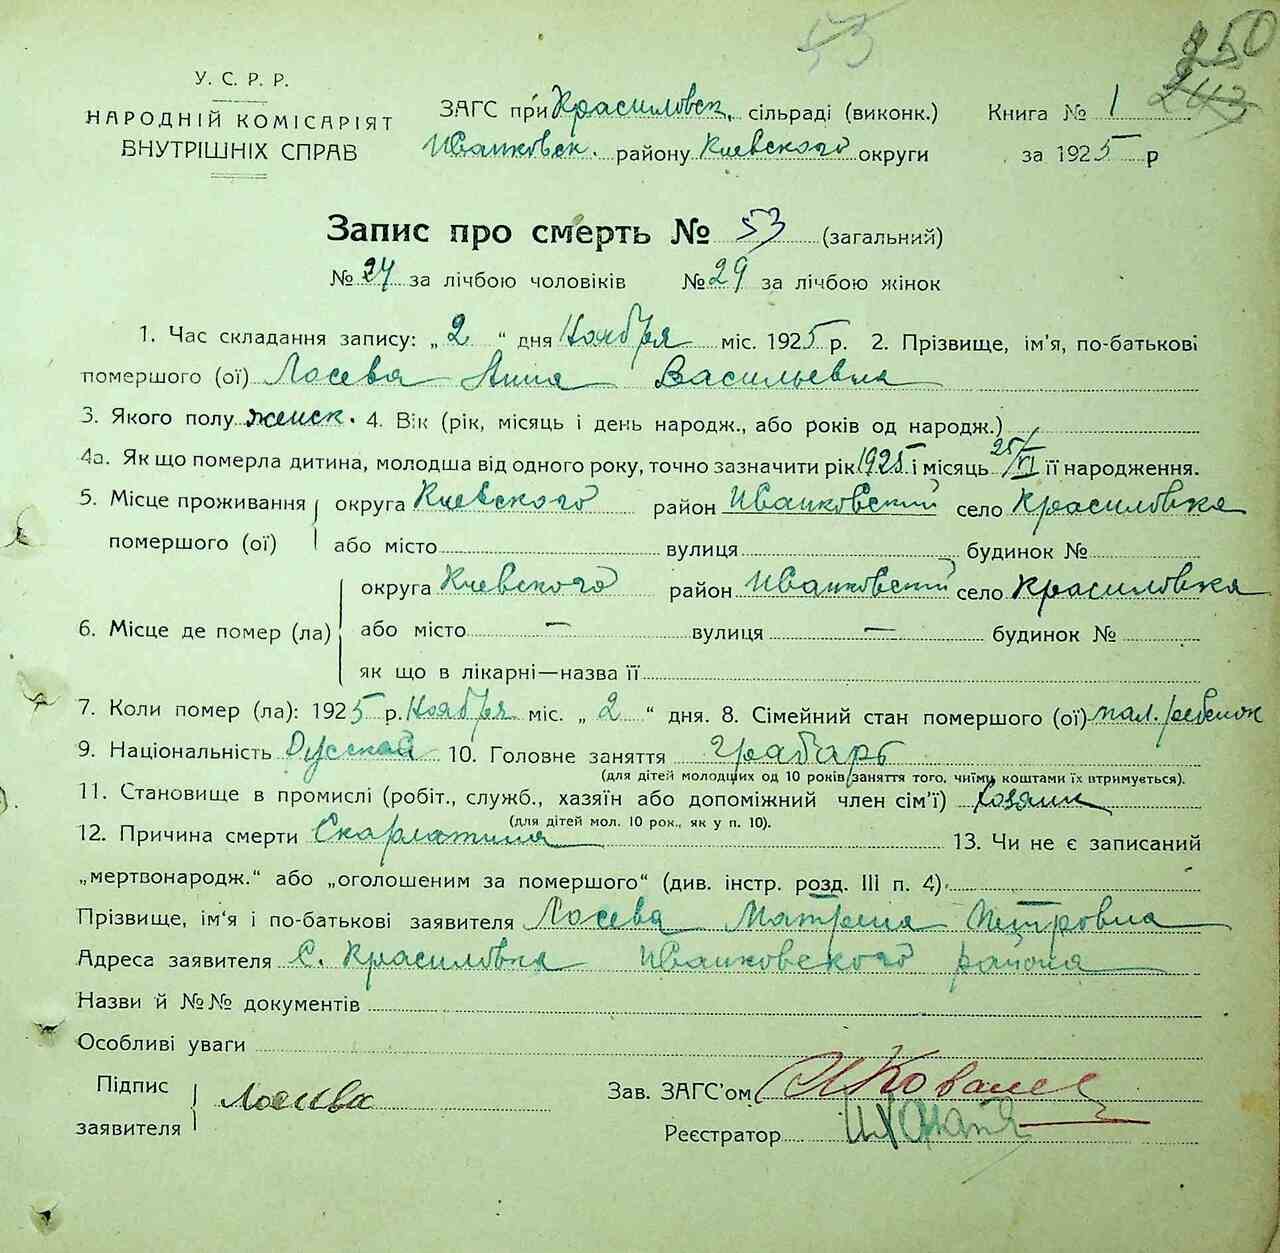 53
250
243
У. С. Р. Р.
НАРОДНІЙ КОМІСАРІЯТ
ВНУТРІШНІХ СПРАВ
ЗАГС при Красиловск. сільраді (виконк.)
Иванковск. району Киевского округи
Книга № 1
за 1925 р
Запис про смерть № 53 (загальний)
№ 24 за лічбою чоловіків № 29 за лічбою жінок
1. Час складання запису: „ 2 “ дня Ноября міс. 1925 р. 2. Прізвище, ім'я, по-батькові
помершого (ої) Лосева Анна Васильевна
3. Якого полу женск. 4. Вік (рік, місяць і день народж., або років од народж.)
4а. Як що померла дитина, молодша від одного року, точно зазначити рік 1925 і місяць 25/VI її народження.
5. Місце проживання округа Киевского район Иванковский село Красиловка
помершого (ої) або місто вулиця будинок №
округа Киевского район Иванковский село Красиловка
6. Місце де помер (ла) або місто — вулиця — будинок №
як що в лікарні—назва її
7. Коли помер (ла): 1925 р. Ноября міс. „ 2 “ дня. 8. Сімейний стан помершого (ої) мал. ребенок
9. Національність Русская 10. Головне заняття Грабарь
(для дітей молодших од 10 років заняття того, чиїми коштами їх втримується).
11. Становище в промислі (робіт., служб., хазяїн або допоміжний член сім'ї) хозяин
(для дітей мол. 10 рок., як у п. 10).
12. Причина смерти Скарлатина 13. Чи не є записаний
„мертвонародж.“ або „оголошеним за помершого“ (див. інстр. розд. III п. 4)
Прізвище, ім'я і по-батькові заявителя Лосева Матрена Петровна
Адреса заявителя С. Красиловка Иванковского района
Назви й №№ документів
Особливі уваги
Підпис
заявителя Лосева
Зав. ЗАГС'ом
Реєстратор